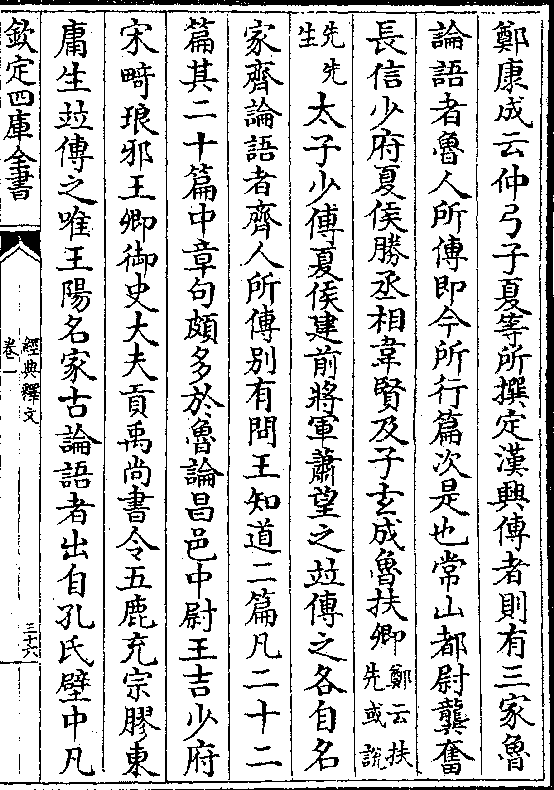 鄭康成云仲弓子夏等所撰定漢興傳者則有三家魯
論語者魯人所傳即今所行篇次是也常山都尉龔奮
長信少府夏侯勝丞相韋賢及子玄成魯扶卿鄭云扶先或說
先先生太子少傅夏侯建前將軍蕭望之竝傳之各自名
家齊論語者齊人所傳別有問王知道二篇凡二十二
篇其二十篇中章句頗多於魯論昌邑中尉王吉少府
宋畸琅邪王卿御史大夫貢禹尚書令五鹿充宗膠東
庸生竝傳之唯王陽名家古論語者出自孔氏壁中凡
欽定四庫全書
經典釋文
卷一
三十六